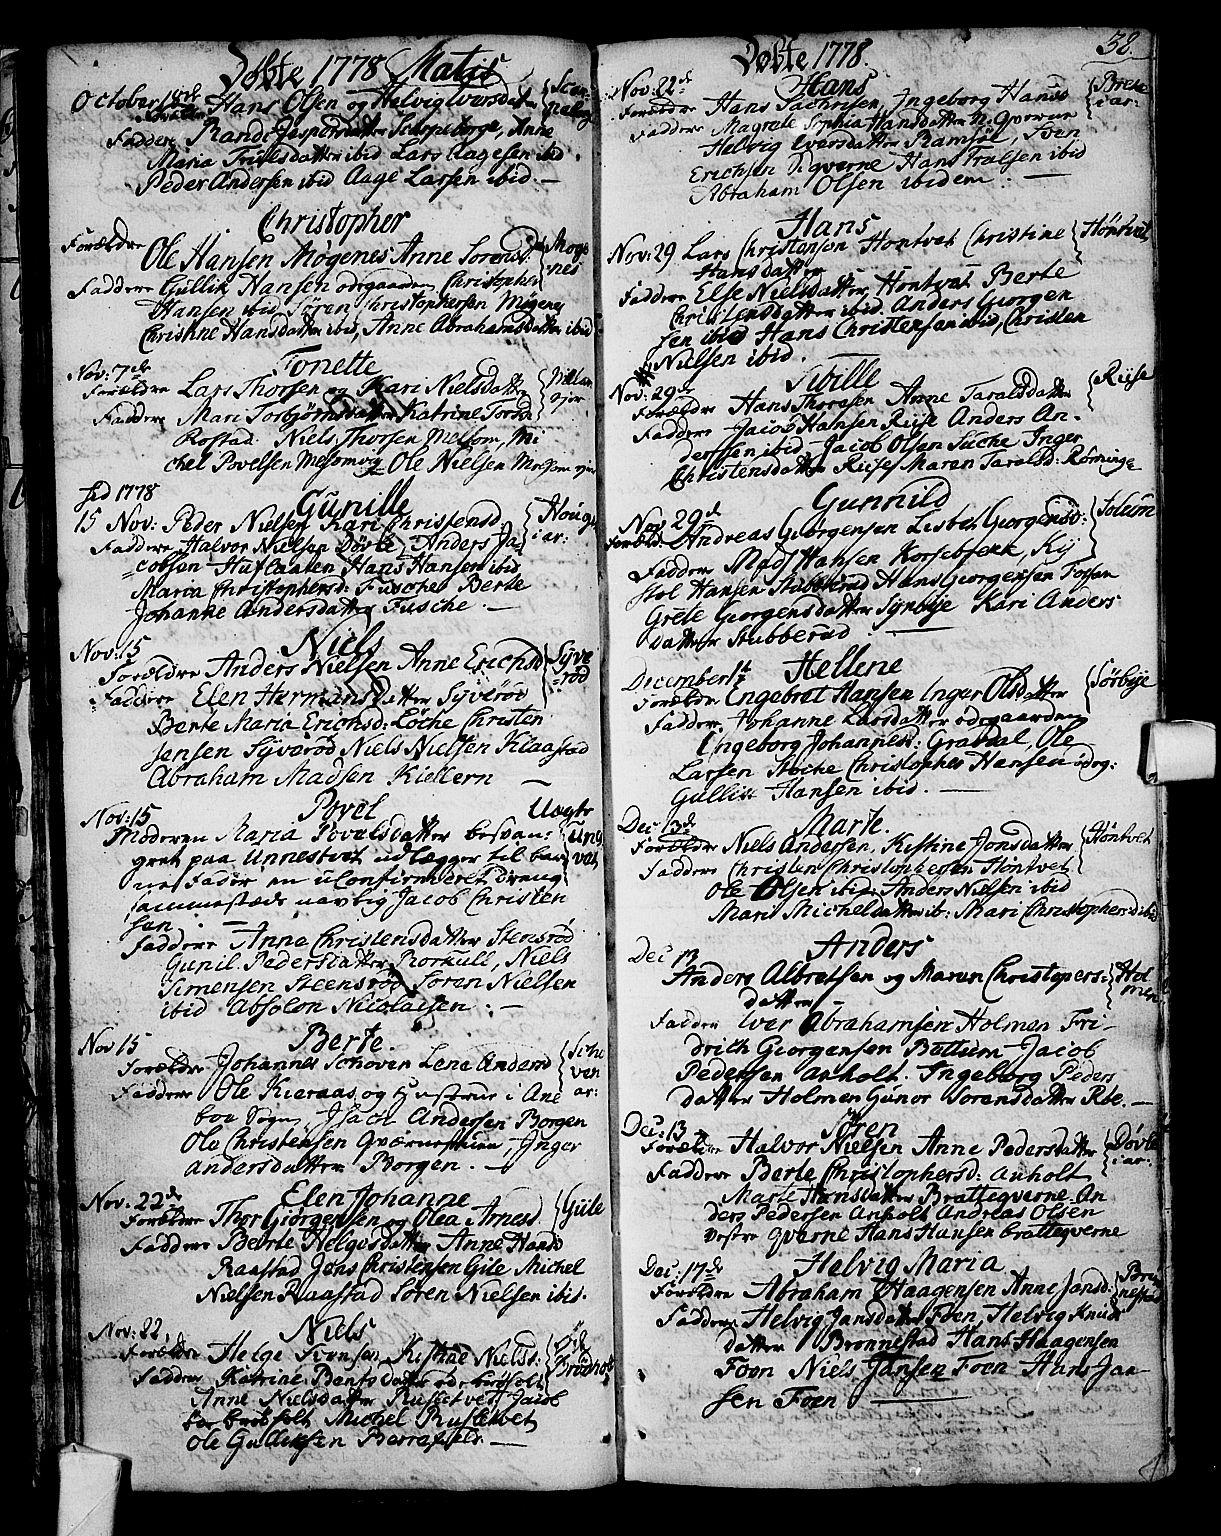 Döbte 1778 Matis
October 18de
Hans Olsen og Helvig Iversdatter
Faddere Randi Jespersdatter Scorpeborge, Anne
Maria Truelsdatter ibid Lars Aagesen ibid.
Peder Andersen ibid Aage Larsen ibid. —
Christopher
Forældre Ole Hansen Mögenes Anne Sorensd: Moge
nes
Faddere Gullik Hansen odegaarden, Christopher
Hansen ibid, Sören Christophersen Mögenes
Christine Hansdatter ibid, Anne Abrahamsdatter ibid
Tonette
Nov: 7de
Forældre Lars Thorsen og Kari Nielsdatter
Faddere Mari Torbjörnsdatter Katrine Torsd:
Rostad. Niels Thorsen Melsom, Mi
chel Povelsen Melsom og Ole Nielsen
fid 1778
Gunille
15 Nov: Peder Nielsen Kari Christensd. Houge
iar:
Faddere Halvor Nielsen Dövle, Anders Ja
cobsen Hans Hansen ibid
Maria Christophersd: Fusche Berte
Johanne Andersdatter Fusche. —
Niels
Nov: 15
Forældre Anders Nielsen Anne Erichsd Syve
röd
Faddere Elen Hermansdatter Syveröd
Berte Maria Erichsd: Löche Christen
Jensen Syveröd Niels Nielsen Klaastad
Abraham Madsen Kiellern —
Povel
Nov: 15 Uægte
Moderen Maria Povelsdatter besvan= Unes
vet
gret paa Unnestvet udlægger til bar
ne Fader en uConfirmeret Dreng
sammestæds navlig Jacob Christen
sen. —
Faddere Anne Christensdatter Stensröd
Gunil Pedersdatter Rorkull, Niels
Simensen Steensröd Sören Nielsen
ibid Absolon Nicolaisen. —
Berte.
Nov 15
Forældre Johannes Schoven Lena Andersd Scho
ven
ar:
Faddere Ole Kieraas og Hustrue i Ane
boe Sogn, Jsach Andersen Borgen
Ole Christensen Jnger
Andersdatter Borgen. —
Elen Johanne
Nov: 22de
Forældre Thor Giörgensen og Olea Arnesd. Giile
Faddere Berte Helgesdatter Anne Hansd
Raastad Jens Christensen Gile Michel
Nielsen Raastad Sören Nielsen ibid.
Niels
Nov: 22,
Forældre Helge Svensen Kistine Nielsd:
Faddere Katrine Bentsdatter
Anne Nielsdatter Russetvet Jacob
Michel Russetvet
Ole Gulliksen —
Döbte 1778. 38.
Hans
Nov: 22d
Forældre Hans Ingeborg Hansd Breke
iar:
Faddere Magrete Sophia Hansdatter N. Qverne
Helvig Eversdatter Ramsöe, Foen
Erichsen Hans Truelsen ibid
Abraham Olsen ibidem. —
Hans
Nov: 29 Lars Christensen Höntvet Christine Höntvet
Hansdatter
Faddere Else Nielsdatter, Höntvet Berte
Christensdatter ibid. Anders Giorgen
sen ibid Hans Christensen ibid, Christen
Nielsen ibid.
Sibille
Nov: 29
Forældre Hans Thoresen Anne Taraldsdatter Riise
Faddere Jacob Hansen Riise Anders An-
dersen ibid. Jacob Olsen Inger
Christensdatter Riise Maren Tarald: Rönninge
Gunnild
Nov 29d
Foræld: Andreas Giörgensen Lisbet Giorgensd: Solum
Faddere Mads Hansen Korsebrekk, Kij
stol Hansen Stubberud Hans Georgensen
Grete Georgensdatter Synbye Kari Anders
datter Stubberud —
Hellene
December 1st
Forældre Engebret Hansen Inger Olsdatter Sörbye
Faddere Johanne Larsdatter ödegaarden
Ingeborg Johannesd: Gravdal, Ole
Larsen Christopher Hansen ödeg:
Gullik Hansen ibid. —
Marte.
Dec: 13de
Forældre Niels Andersen, Kistine Jonsdatter Höntvet
Faddere Christen Christophersen Höntvet
Ole Olsen ibid: Anders Nielsen ibid
Mari Micheldatter ib: Mari Christophersd ibid
Anders
Dec 13
Anders Albretsen og Maren Christopers= Hol
men
datter
Faddere Iver Abrahamsen Holmen Fri-
drich Georgensen Bottum Jacob
Pedersen Anholt. Ingeborg Peders
datter Holmen Gunor Sorensdatter Rbe. —
Sören
Dec: 13
Forældre Halvor Nielsen Anne Pedersdatter Dövle
iar:
Faddere Berte Christophersd: Anholt
Marte Hansdatter Bratteqverne An
ders Pedersen Anholt Andreas Olsen
Vestre qverne Hans Hansen bratteqverne
Helvig Maria
Dec: 17de
Forældre Abraham Haagensen Anne Jansd: Bre
nestad
Faddere Helvig Jansdatter Foen, Helvig Knuds
datter Bronnestad Hans Haagensen
Foen Niels Jansen Foen Hans Jan-
sen Foen —